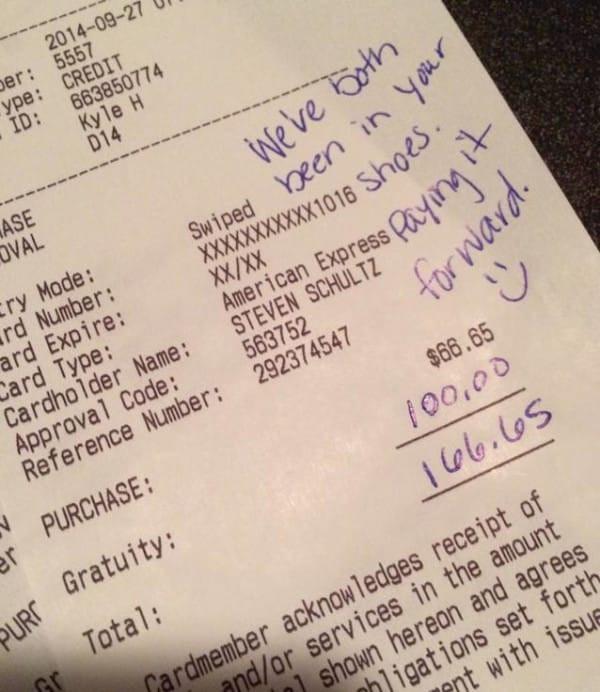 2014-09-27
5557
CREDIT
ID: 663850774
Kyle H
D14
We've both
been in your
shoes.
Paying it
forward.
Swiped
XXXXXXXXXXX1016
XX/XX
Card Type: American Express
Cardholder Name: STEVEN SCHULTZ
Approval Code: 563752
Reference Number: 292374547
PURCHASE: $66.65
Gratuity: 100.00
Total: 166.65
Cardmember acknowledges receipt of
and/or services in the amount
shown hereon and agrees
obligations set forth
with